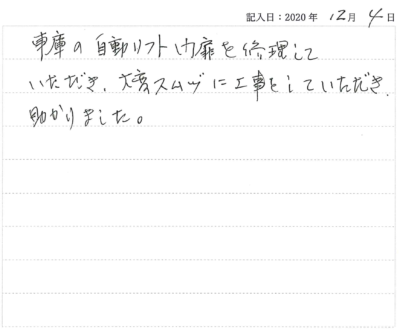 記入日：2020年 12月 4日
車庫の自動リフト内扉を修理して
いただき、大変スムヅに工事をしていただき、
助かりました。